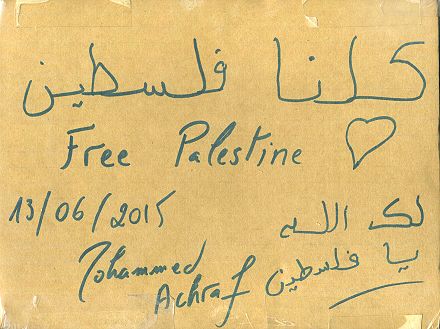 كلنا فلسطين
Free Palestine
13/06/2015
لك الله
يا فلسطين
Mohammed
Achraf